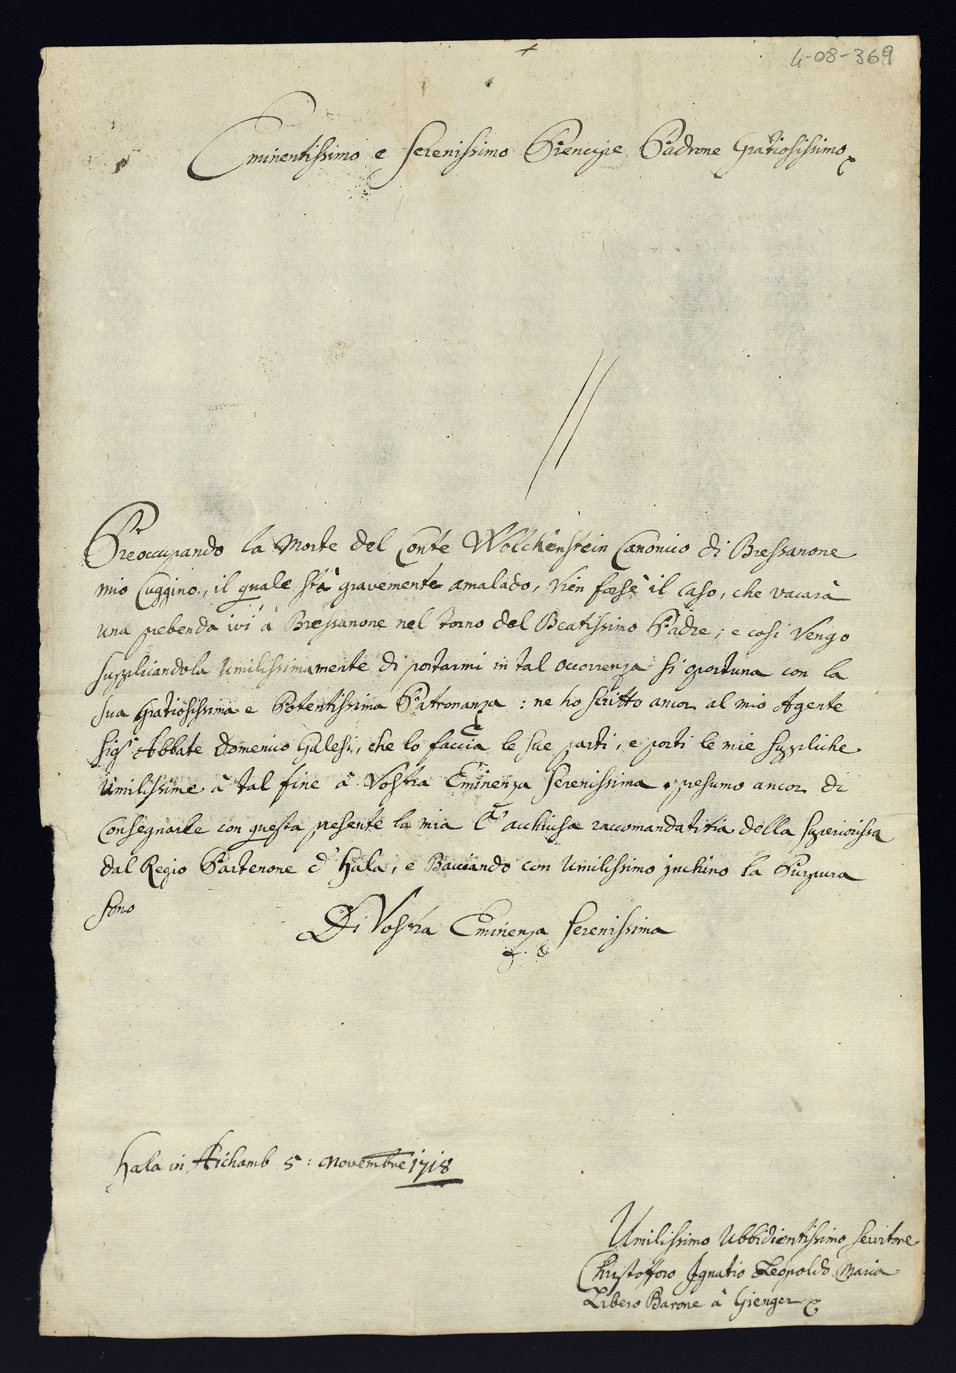 4-08-369
Eminentissimo e Serenissimo Prencipe Padrone Gratiosissimo
Preoccupando la Morte del Conte Wolckenstein Canonico di Bressanone
mio Cuggino, il quale stà gravemente amalado, vien forse il caso, che vacarà
una prebenda ivi à Bressanone nel torno del Beatissimo Padre; e cosi vengo
supplicandola Umilissimamente di portarmi in tal occorrenza si oportuna con la
sua Gratiosissima e Potentissima Patronanza: ne ho scritto ancor al mio Agente
Sigr Abbate Domenico Galesi, che lo faccia le sue parti, e porti le mie suppliche
Umilissime à tal fine à Vostra Eminenza Serenissima, presumo ancor di
Consegnarle con questa presente la mia acchiusa raccomandatitia della Superiorissa
dal Regio Partenone d'Hala, e Bacciando con Umilissimo inchino la Purpura
sono
Di Vostra Eminenza Serenissima
Hala in Aichamb 5: Novembre 1718
Umilissimo Ubbidientissimo Servitore
Christofforo Ignatio Leopoldo Maria
Libero Barone à Gienger